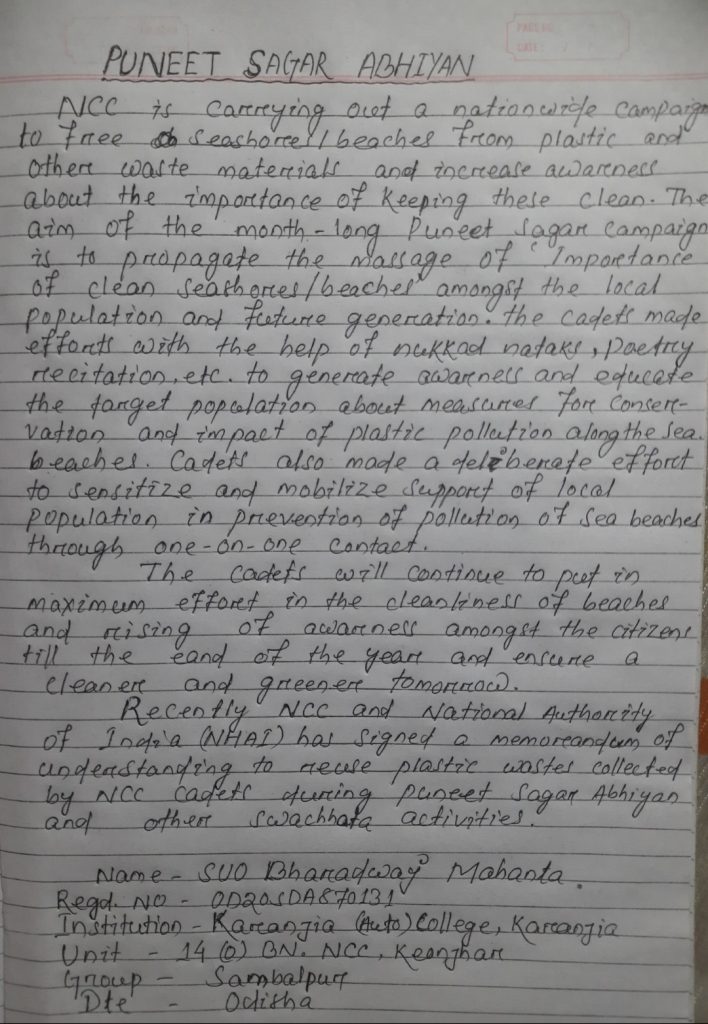 PAGE NO
DATE:
PUNEET SAGAR ABHIYAN
NCC is carrying out a nationwide campaign
to free seashores/beaches from plastic and
other waste materials and increase awareness
about the importance of keeping these clean. The
aim of the month-long Puneet Sagar Campaign
is to propagate the massage of 'Importance
of clean seashores/beaches' amongst the local
population and future generation. The cadets made
efforts with the help of nukkad nataks, poetry
recitation, etc. to generate awarness and educate
the target population about measures for conser-
vation and impact of plastic pollution along the sea
beaches. Cadets also made a deliberate effort
to sensitize and mobilize support of local
population in prevention of pollution of sea beaches
through one-on-one contact.
The cadets will continue to put in
maximum effort in the cleanliness of beaches
and rising of awarness amongst the citizens
till the eand of the year and ensure a
cleaner and greener tomorrow.
Recently NCC and National Authority
of India (NHAI) has signed a memorandum of
understanding to reuse plastic wastes collected
by NCC cadets during Puneet Sagar Abhiyan
and other swachhata activities.
Name - SUO Bharadwaj Mahanta.
Regd. NO - OD20SDA870131
Institution - Karanjia (Auto) College, Karanjia
Unit - 14 (O) BN. NCC, Keonjhar
Group - Sambalpur
Dte - Odisha